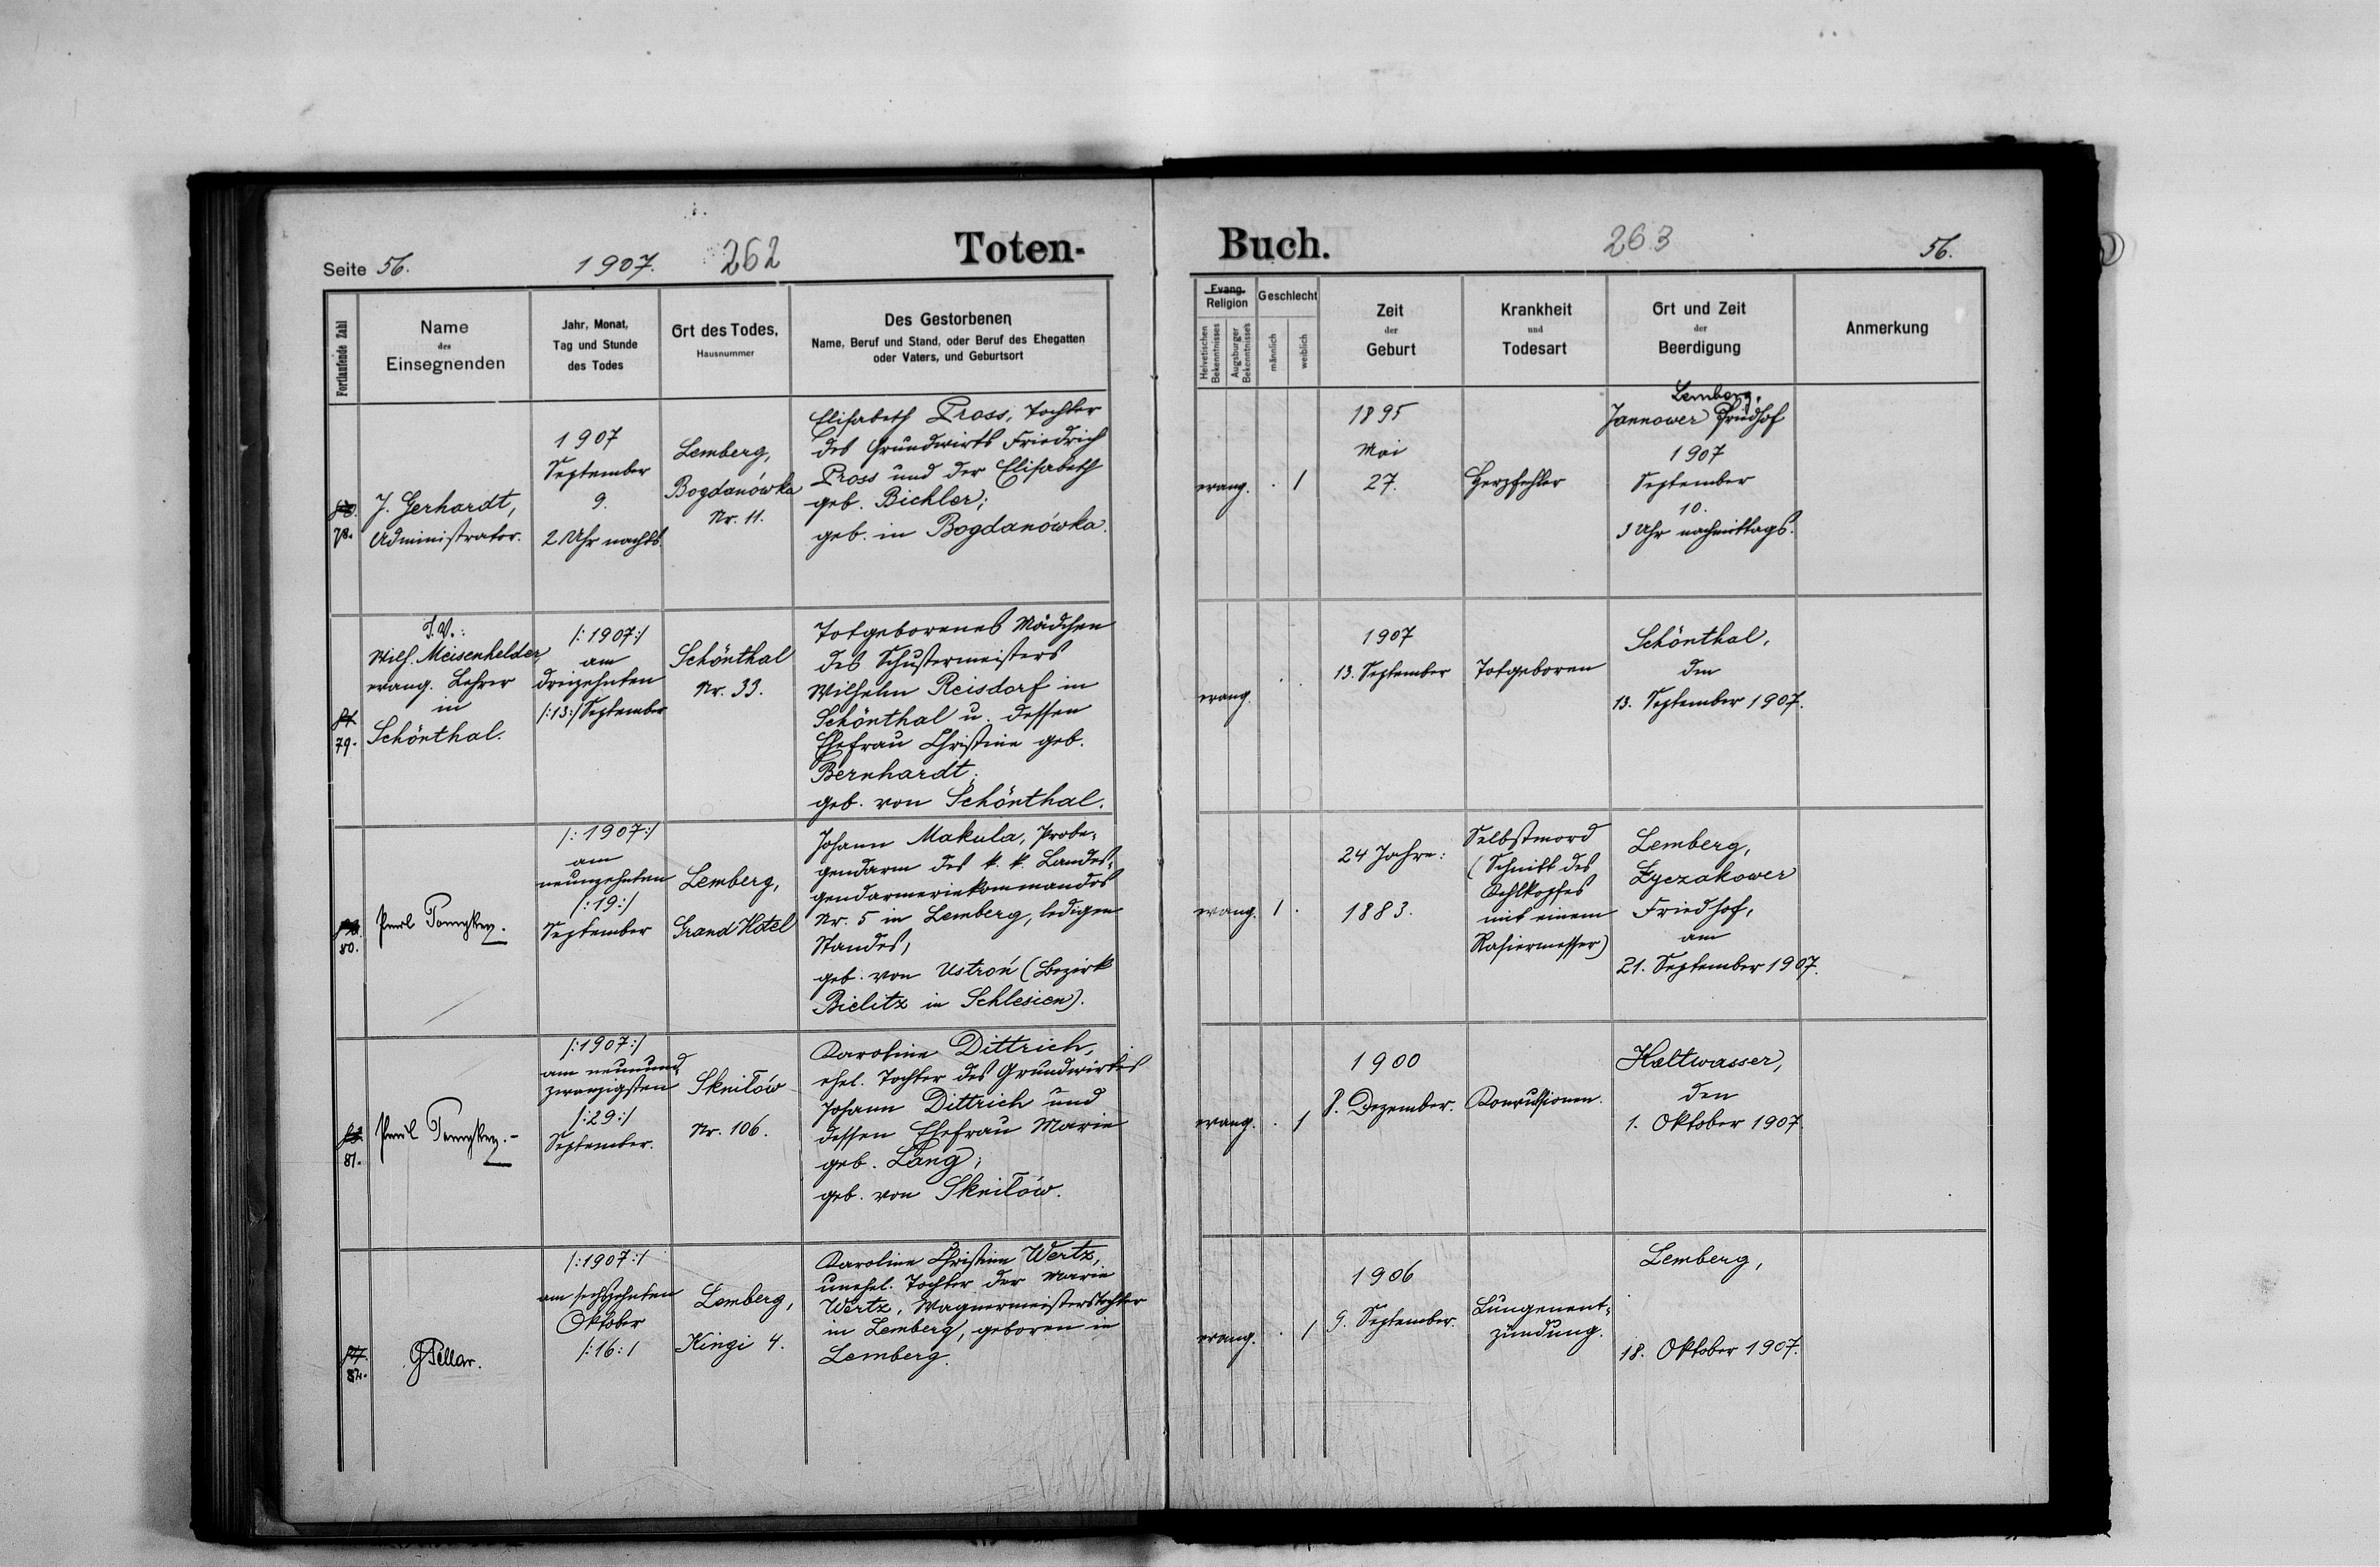 Seite 56. 1907. 262 Toten-
Fortlaufende Zahl
Name
des
Einsegnenden
Jahr, Monat,
Tag und Stunde
des Todes
Ort des Todes,
Hausnummer
Des Gestorbenen
Name, Beruf und Stand, oder Beruf des Ehegatten
oder Vaters, und Geburtsort
78.
J. Gerhardt,
Administrator.
1907
September
9.
2 Uhr nachts.
Lemberg,
Bogdanówka
Nr. 11.
Elisabeth Pross, Tochter
des Grundwirts Friedrich
Pross und der Elisabeth
geb. Bichler;
geb. in Bogdanówka.
79.
I. V.:
Wilh. Meisenhelder,
evang. Lehrer
in
Schönthal.
/:1907:/
am
dreizehnten
/:13:/ September
Schönthal
Nr. 33.
Totgeborenes Mädchen
des Schustermeisters
Wilhelm Reisdorf in
Schönthal u. dessen
Ehefrau Christine geb.
Bernhardt;
geb. von Schönthal.
80.
/:1907:/
am
neunzehnten
/:19:/
September
Lemberg,
Grand Hotel
Johann Makula, Probe-
gendarm des k. k. Landes-
gendarmeriekommandos
Nr. 5 in Lemberg, ledigen
Standes,
geb. von Ustroń (Bezirk
Bielitz in Schlesien).
81.
/:1907:/
am neunund
zwanzigsten
/:29:/
September.
Skniłów
Nr. 106.
Karoline Dittrich,
ehel. Tochter des Grundwirtes
Johann Dittrich und
dessen Ehefrau Marie
geb. Lang;
geb. von Skniłów.
82.
/:1907:/
am sechzehnten
Oktober
/:16:/
Lemberg,
Kingi 4.
Karoline Christine Wertz,
unehel. Tochter der Marie
Wertz, Wagnermeisterstochter
in Lemberg, geboren in
Lemberg.
Buch. 263 56.
Evang.
Religion
Helvetischen
Bekenntnisses
Augsburger
Bekenntnisses
Geschlecht
männlich
weiblich
Zeit
der
Geburt
Krankheit
und
Todesart
Ort und Zeit
der
Beerdigung
Anmerkung
evang. . 1
1895
Mai
27.
Herzfehler
Lemberg,
Jannower Friedhof
1907
September
10.
3 Uhr nachmittags.
evang.
1907
13. September
Totgeboren
Schönthal,
den
13. September 1907.
evang. 1 .
24 Jahre:
1883.
Selbstmord
(Schnitt des
Kehlkopfes
mit einem
Rasiermesser)
Lemberg,
Łyczakower
Friedhof,
am
21. September 1907.
evang. . 1
1900
8. Dezember.
Konvulsionen.
Kaltwasser,
den
1. Oktober 1907.
evang. . 1
1906
9. September.
Lungenent-
zündung.
Lemberg,
18. Oktober 1907.